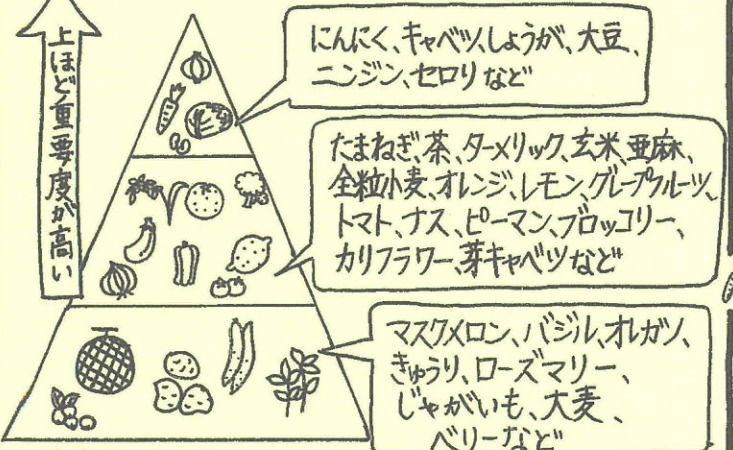 上ほど重要度が高い
にんにく、キャベツ、しょうが、大豆、
ニンジン、セロリなど
たまねぎ、茶、ターメリック、玄米、亜麻、
全粒小麦、オレンジ、レモン、グレープフルーツ、
トマト、ナス、ピーマン、ブロッコリー、
カリフラワー、芽キャベツなど
マスクメロン、バジル、オレガノ、
きゅうり、ローズマリー、
じゃがいも、大麦、
ベリーなど